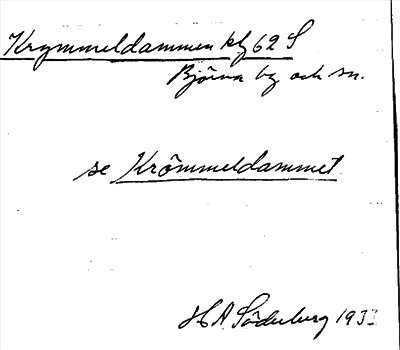 Krymmeldammen kf 62 S
Björna by och sn.
se Krömmeldammet
H A. Söderberg 193